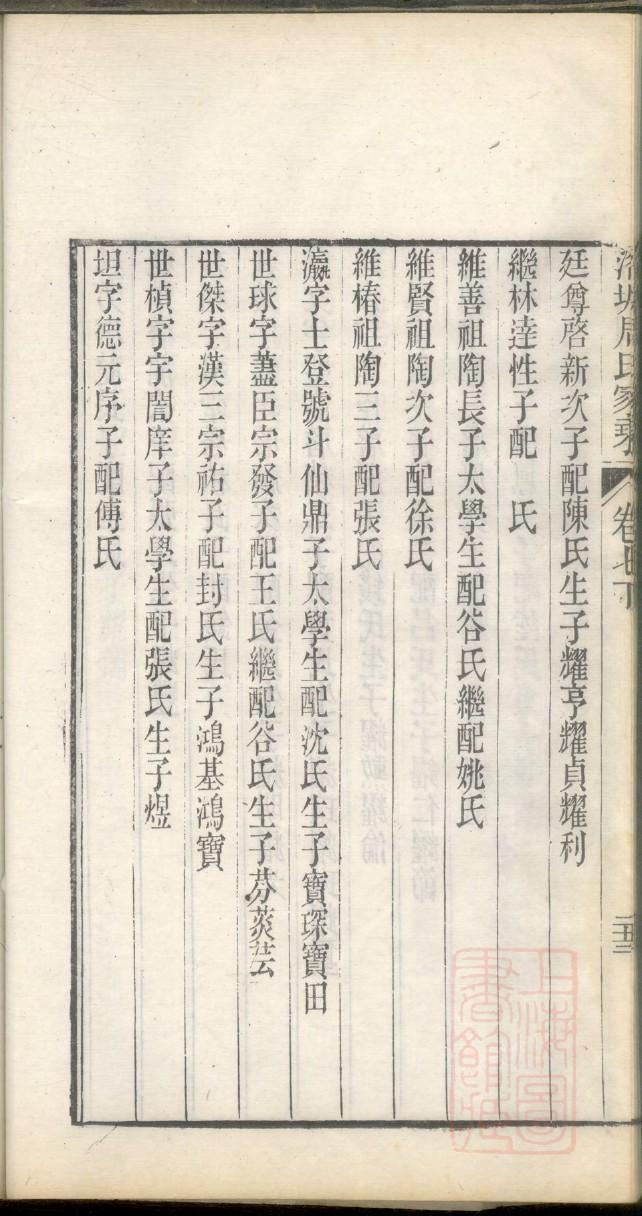 周氏家乘
卷七下
廷尊啓新次子配陳氏生子耀亨耀貞耀利
繼林達性子配　氏
維善祖陶長子太學生配谷氏繼配姚氏
維賢祖陶次子配徐氏
維椿祖陶三子配張氏
瀛字士登號斗仙鼎子太學生配沈氏生子寶琛寶田
世球字藎臣宗發子配王氏繼配谷氏生子芬荄芸
世傑字漢三宗祐子配封氏生子鴻基鴻寶
世楨字宇誾庠子太學生配張氏生子煜
坦字德元序子配傅氏
上海圖
書館藏